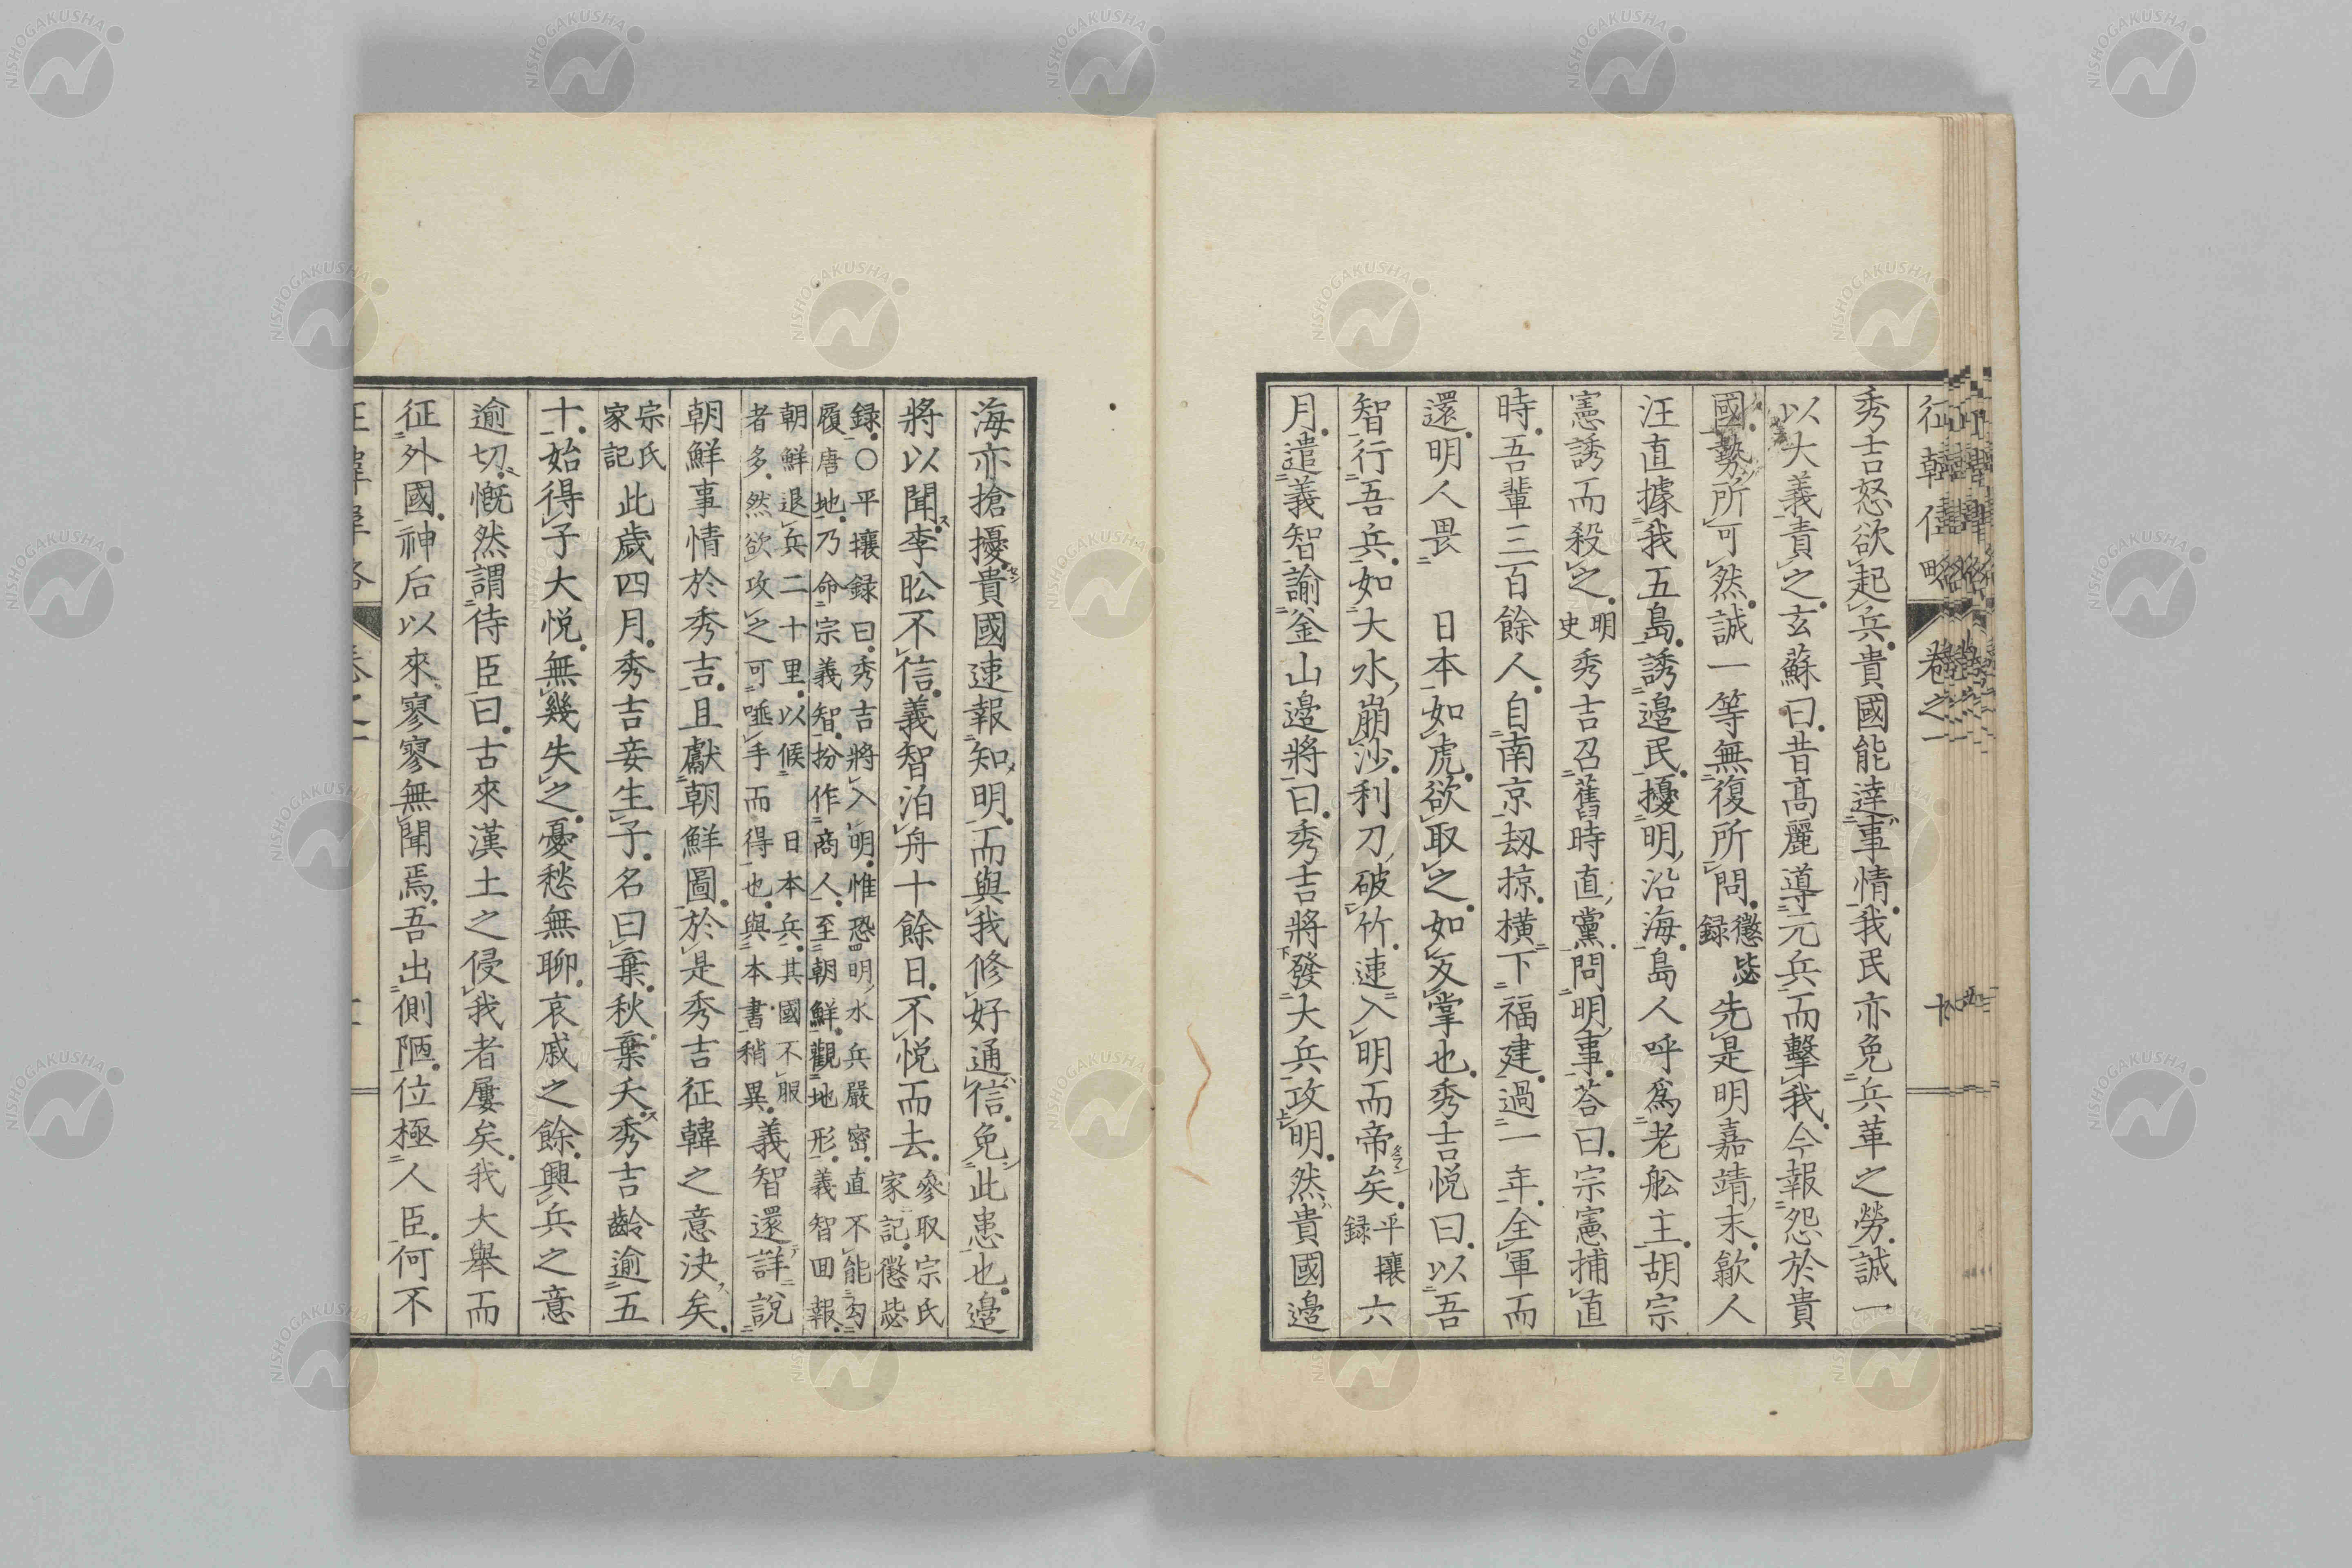 秀吉怒欲起兵貴國能達事情我民亦免兵革之勞誠一
以大義責之玄蘇曰昔高麗導元兵而擊我今報怨於貴
國勢所可然誠一等無復所問懲毖録先是明嘉靖末歙人
汪直據我五島誘邊民擾明沿海島人呼爲老舩主胡宗
憲誘而殺之明史秀吉召舊時直黨問明事荅曰宗憲捕直
時吾輩三百餘人自南京劫掠横下福建過一年全軍而
還明人畏日本如虎欲取之如反掌也秀吉悦曰以吾
智行吾兵如大水崩沙利刀破竹速入明而帝矣平攘録六
月遣義智諭釜山邊將曰秀吉將發大兵攻明然貴國邊
海亦搶擾貴國速報知明而與我修好通信免此患也邊
將以聞李昖不信義智泊舟十餘日不悦而去參取宗氏家記懲毖
録○平攘録曰秀吉將入明惟恐明水兵嚴密直不能勾
履唐地乃命宗義智扮作商人至朝鮮觀地形義智回報
朝鮮退兵二十里以候日本兵其國不服
者多然欲攻之可唾手而得也與本書稍異義智還詳説
朝鮮事情於秀吉且獻朝鮮圖於是秀吉征韓之意決矣
宗氏家記此歳四月秀吉妾生子名曰棄秋棄夭秀吉齡逾五
十始得子大悦無幾失之憂愁無聊哀戚之餘興兵之意
逾切慨然謂侍臣曰古來漢土之侵我者屢矣我大舉而
征外國神后以來寥寥無聞焉吾出側陋位極人臣何不